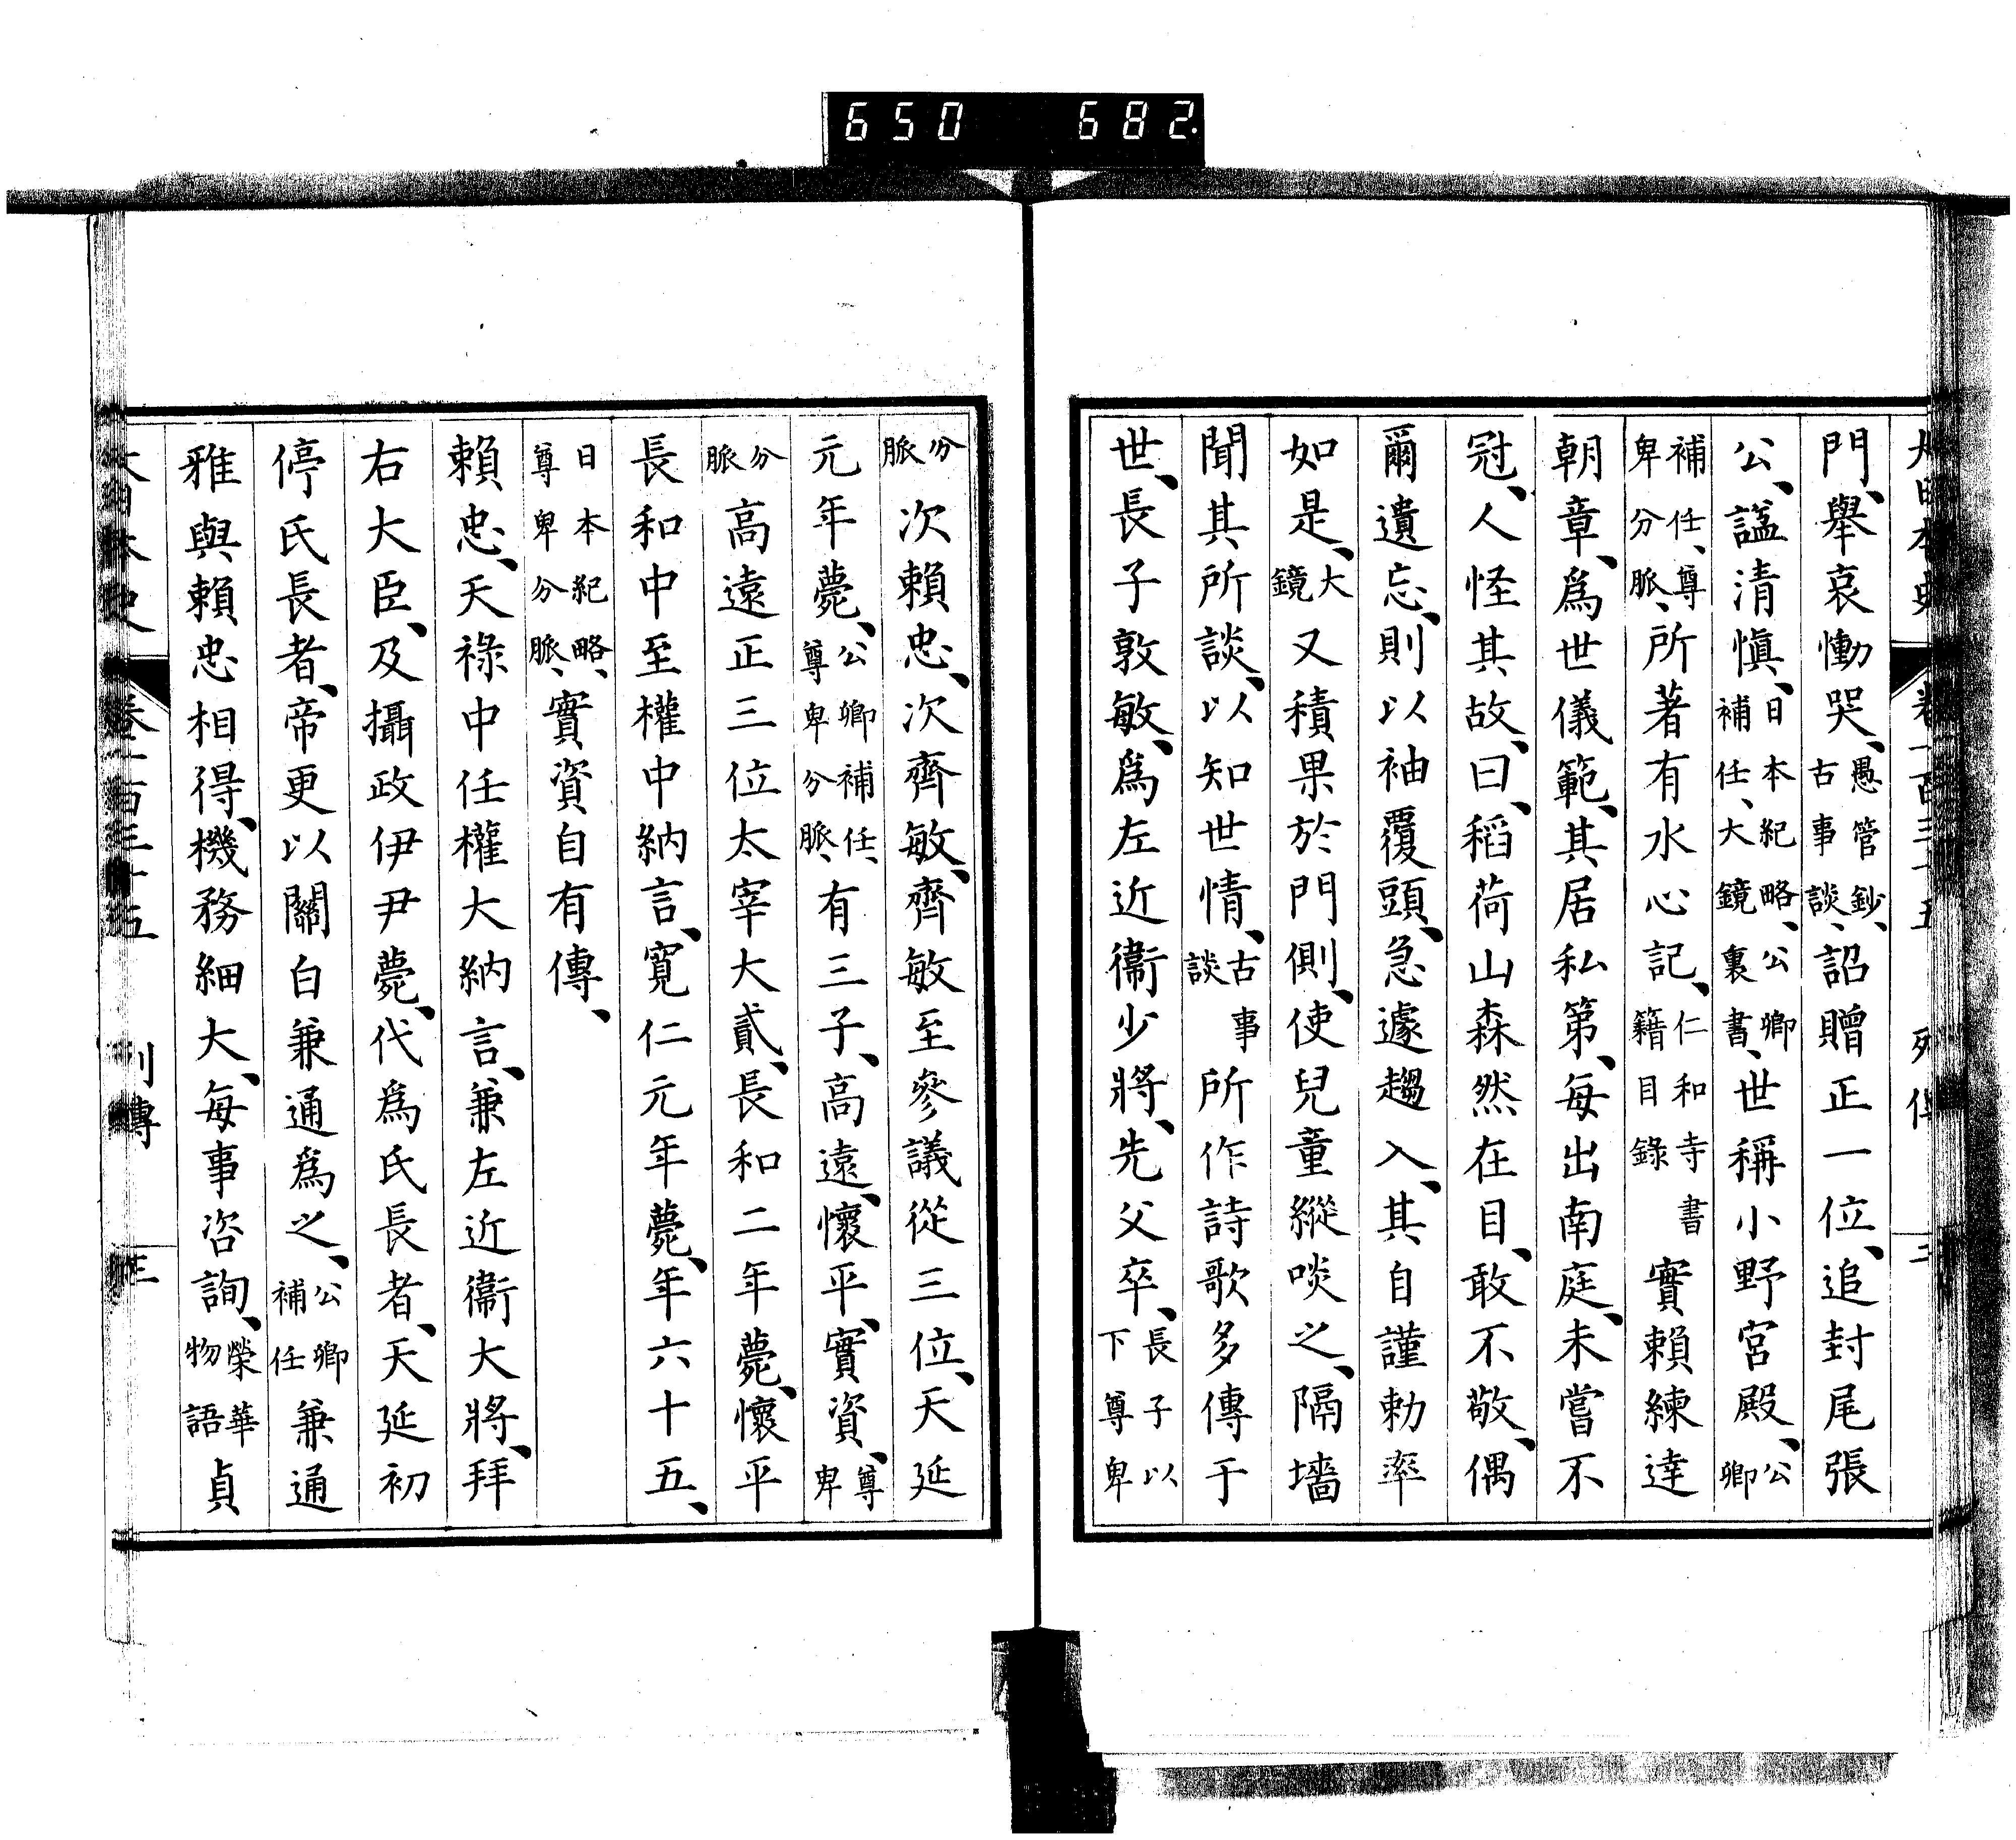 650 682
大日本史 卷一百三十五 列傳 三
門、舉哀慟哭、愚管鈔、古事談、詔贈正一位、追封尾張
公、諡清愼、日本紀略、公卿補任、大鏡裏書、世稱小野宮殿、公卿
補任、尊卑分脈、所著有水心記、仁和寺書籍目錄實賴練達
朝章、爲世儀範、其居私第、每出南庭、未嘗不
冠、人怪其故、曰、稻荷山森然在目、敢不敬、偶
爾遺忘、則以袖覆頭、急遽趨入、其自謹勅率
如是、大鏡又積果於門側、使兒童縱啖之、隔墻
聞其所談、以知世情、古事談所作詩歌多傳于
世、長子敦敏、爲左近衞少將、先父卒、長子以下尊卑
分脈次賴忠、次齊敏、齊敏至參議從三位、天延
元年薨、公卿補任、尊卑分脈、有三子、高遠、懷平、實資、尊卑
分脈高遠正三位太宰大貳、長和二年薨、懷平
長和中至權中納言、寬仁元年薨、年六十五、
日本紀略、尊卑分脈、實資自有傳、
賴忠、天祿中任權大納言、兼左近衞大將、拜
右大臣、及攝政伊尹薨、代爲氏長者、天延初
停氏長者、帝更以關白兼通爲之、公卿補任兼通
雅與賴忠相得、機務細大、每事咨詢、榮華物語貞
大日本史 卷一百三十五 列傳 三